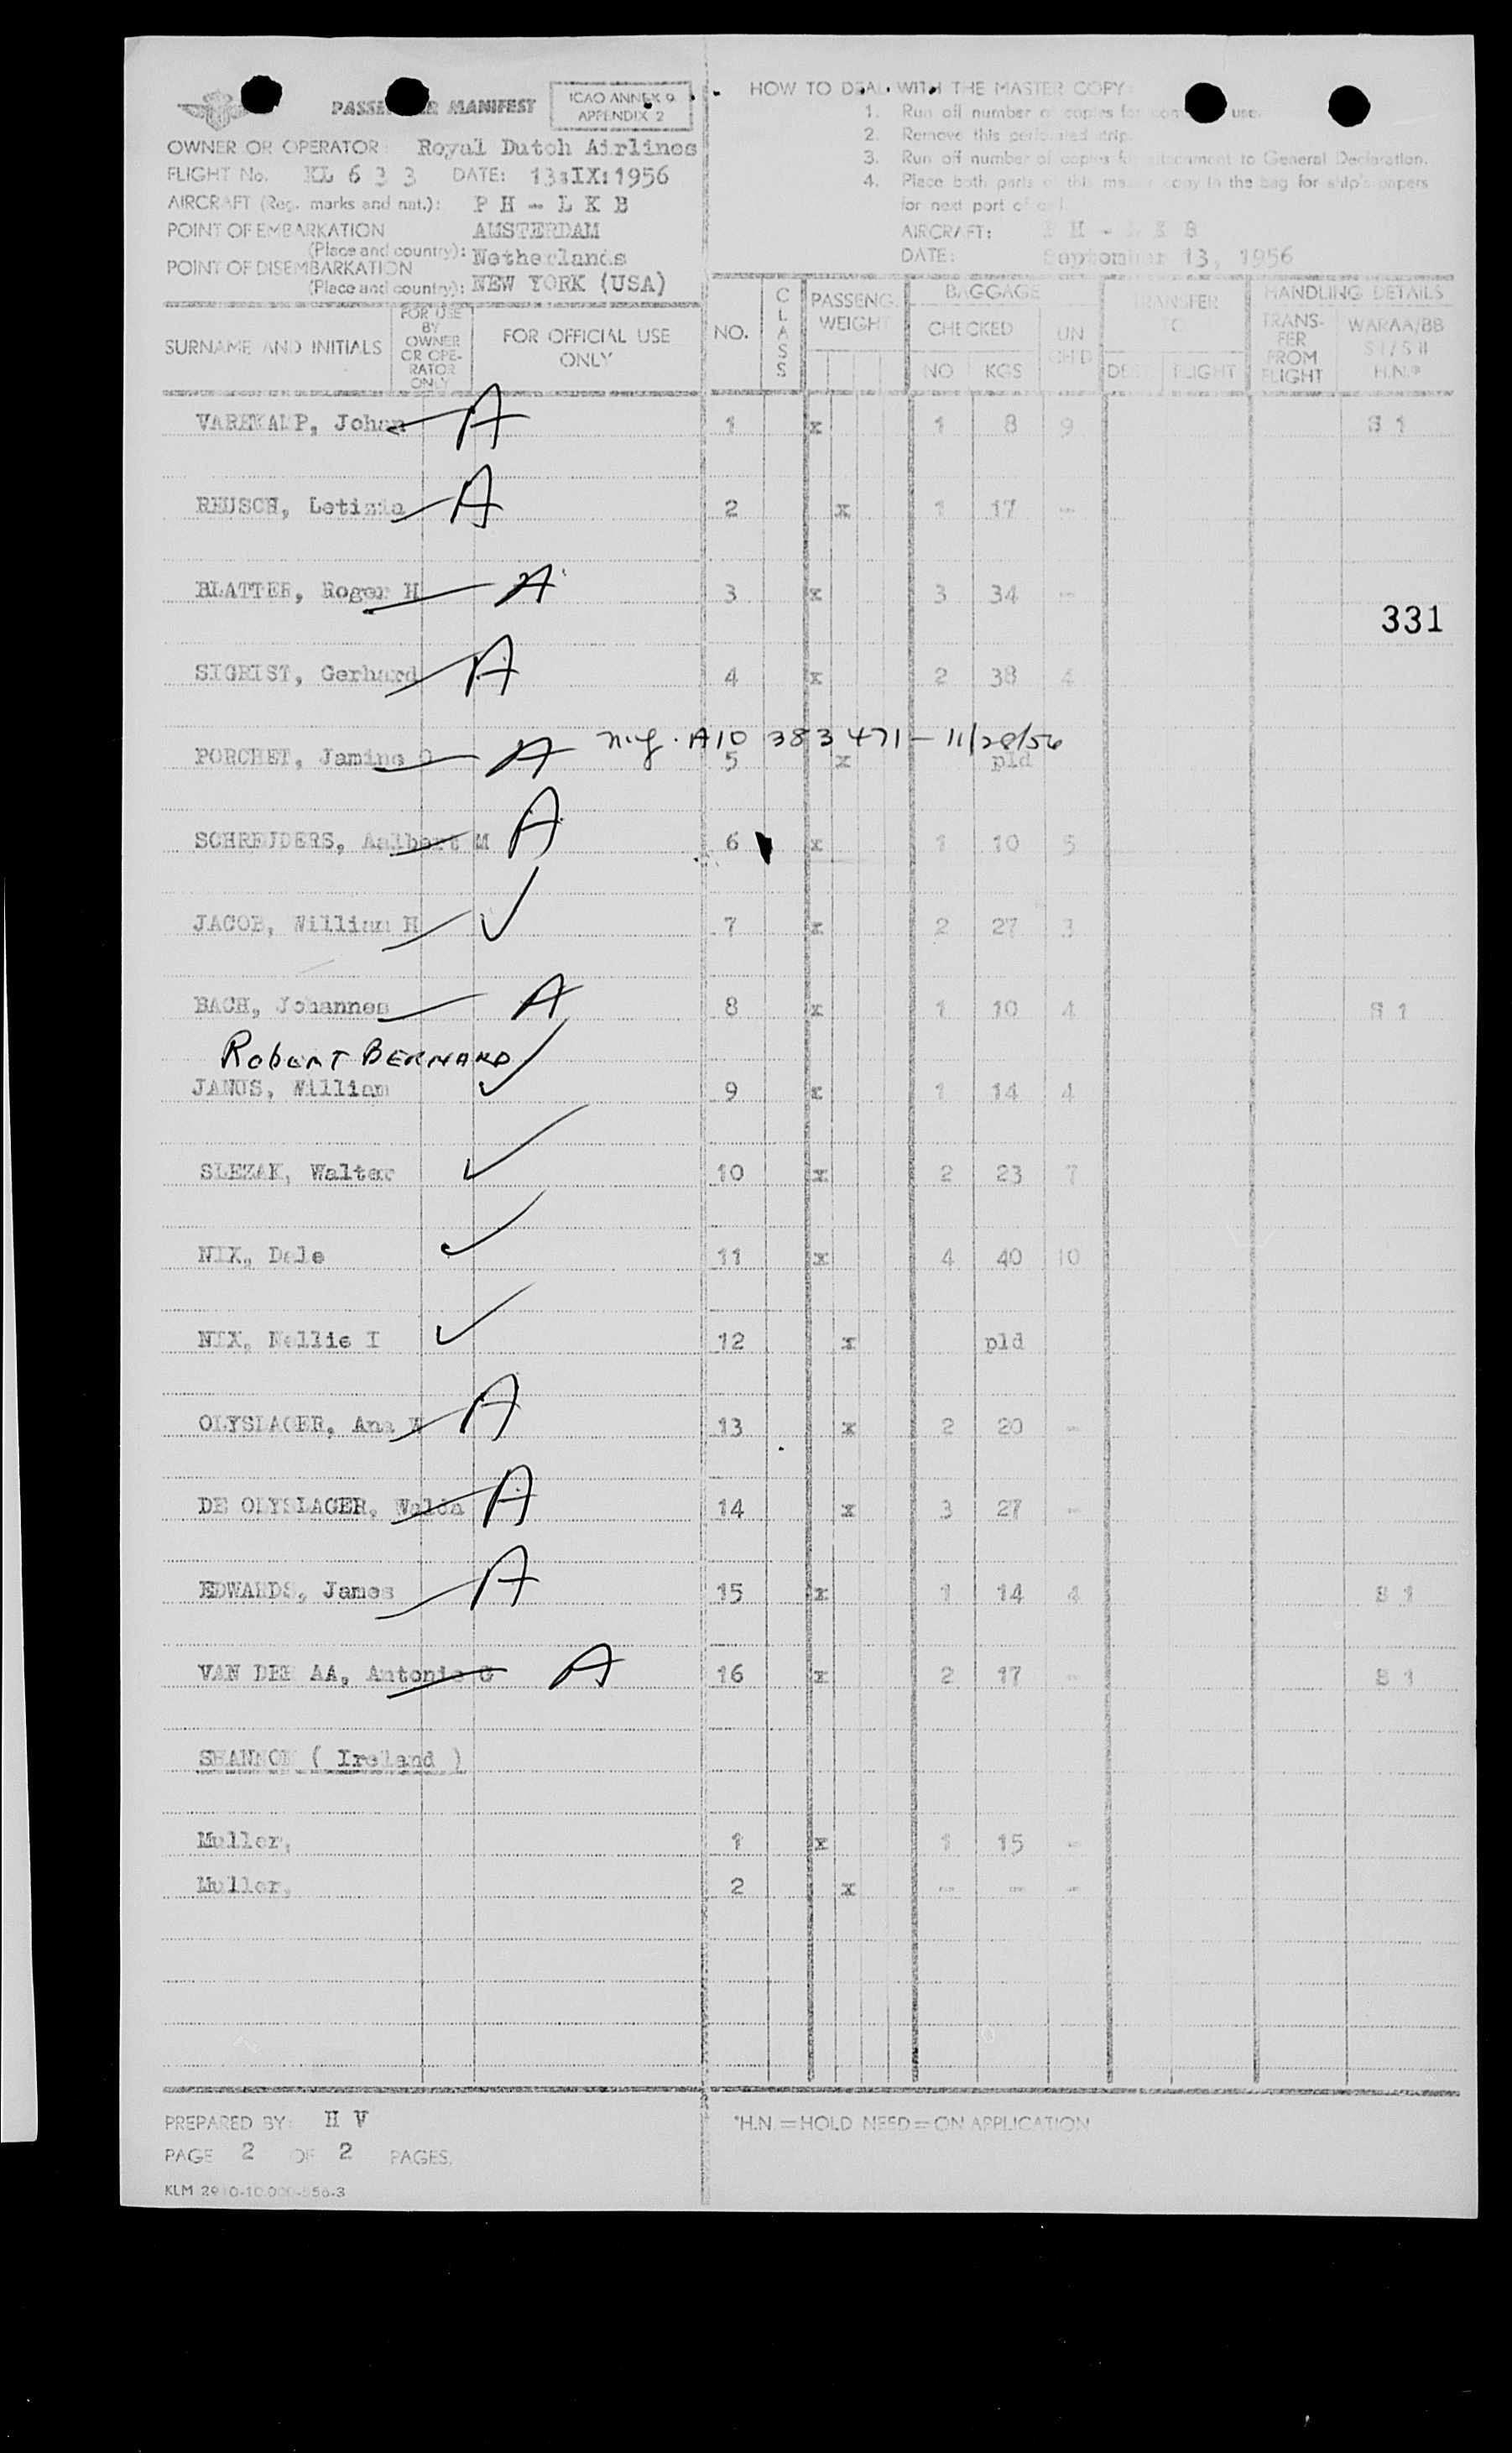 PASSENGER MANIFEST
ICAO ANNEX 9
APPENDIX 2
OWNER OR OPERATOR: Royal Dutch Airlines
FLIGHT No. KL 6 3 3 DATE: 13:IX:1956
AIRCRAFT (Reg. marks and nat.): P H - L K B
POINT OF EMBARKATION AMSTERDAM
(Place and country): Netherlands
POINT OF DISEMBARKATION
(Place and country): NEW YORK (USA)
HOW TO DEAL WITH THE MASTER COPY:
1. Run off number of copies for use.
2. Remove this perforated strip.
3. Run off number of copies for attachment to General Declaration.
4. Place both parts of this master copy in the bag for ship's papers
for next part of
AIRCRAFT: P H - L K B
DATE: September 13, 1956
SURNAME AND INITIALS
FOR USE BY OWNER OR OPE-RATOR ONLY
FOR OFFICIAL USE ONLY
NO. CLASS PASSENG. WEIGHT BAGGAGE TRANSFER TO HANDLING DETAILS
CHECKED UN CH'D TRANS-FER FROM FLIGHT WARAA/BB S I / S II H.N.*
NO KGS DEST. FLIGHT
VAREKAMP, Johan A 1 x 1 8 9 S 1
REUSCH, Letizia A 2 x 1 17 -
BLATTER, Roger H A 3 x 3 34 -
331
SIGRIST, Gerhard A 4 x 2 38 4
n.y. A10 383 471 - 11/28/56
PORCHET, Jamine O A 5 x pld
SCHREUDERS, Aalbert M A 6 x 1 10 5
JACOB, William H ✓ 7 x 2 27 3
BACH, Johannes A 8 x 1 10 4 S 1
Robert BERNARD
JANUS, William ✓ 9 x 1 14 4
SLEZAK, Walter ✓ 10 x 2 23 7
NIX, Dale ✓ 11 x 4 40 10
NIX, Nellie I ✓ 12 x pld
OLYSLAGER, Ana A 13 x 2 20 -
DE OLYSLAGER, A 14 x 3 27 -
EDWARDS, James A 15 x 1 14 4 S 1
VAN DER AA, Antonie G A 16 x 2 17 - S 1
SHANNON ( Ireland )
Muller, 1 x 1 15 -
Muller, 2 x - - -
PREPARED BY: H V
PAGE 2 OF 2 PAGES.
*H.N. = HOLD NEED = ON APPLICATION
KLM 2910-10.000-556-3